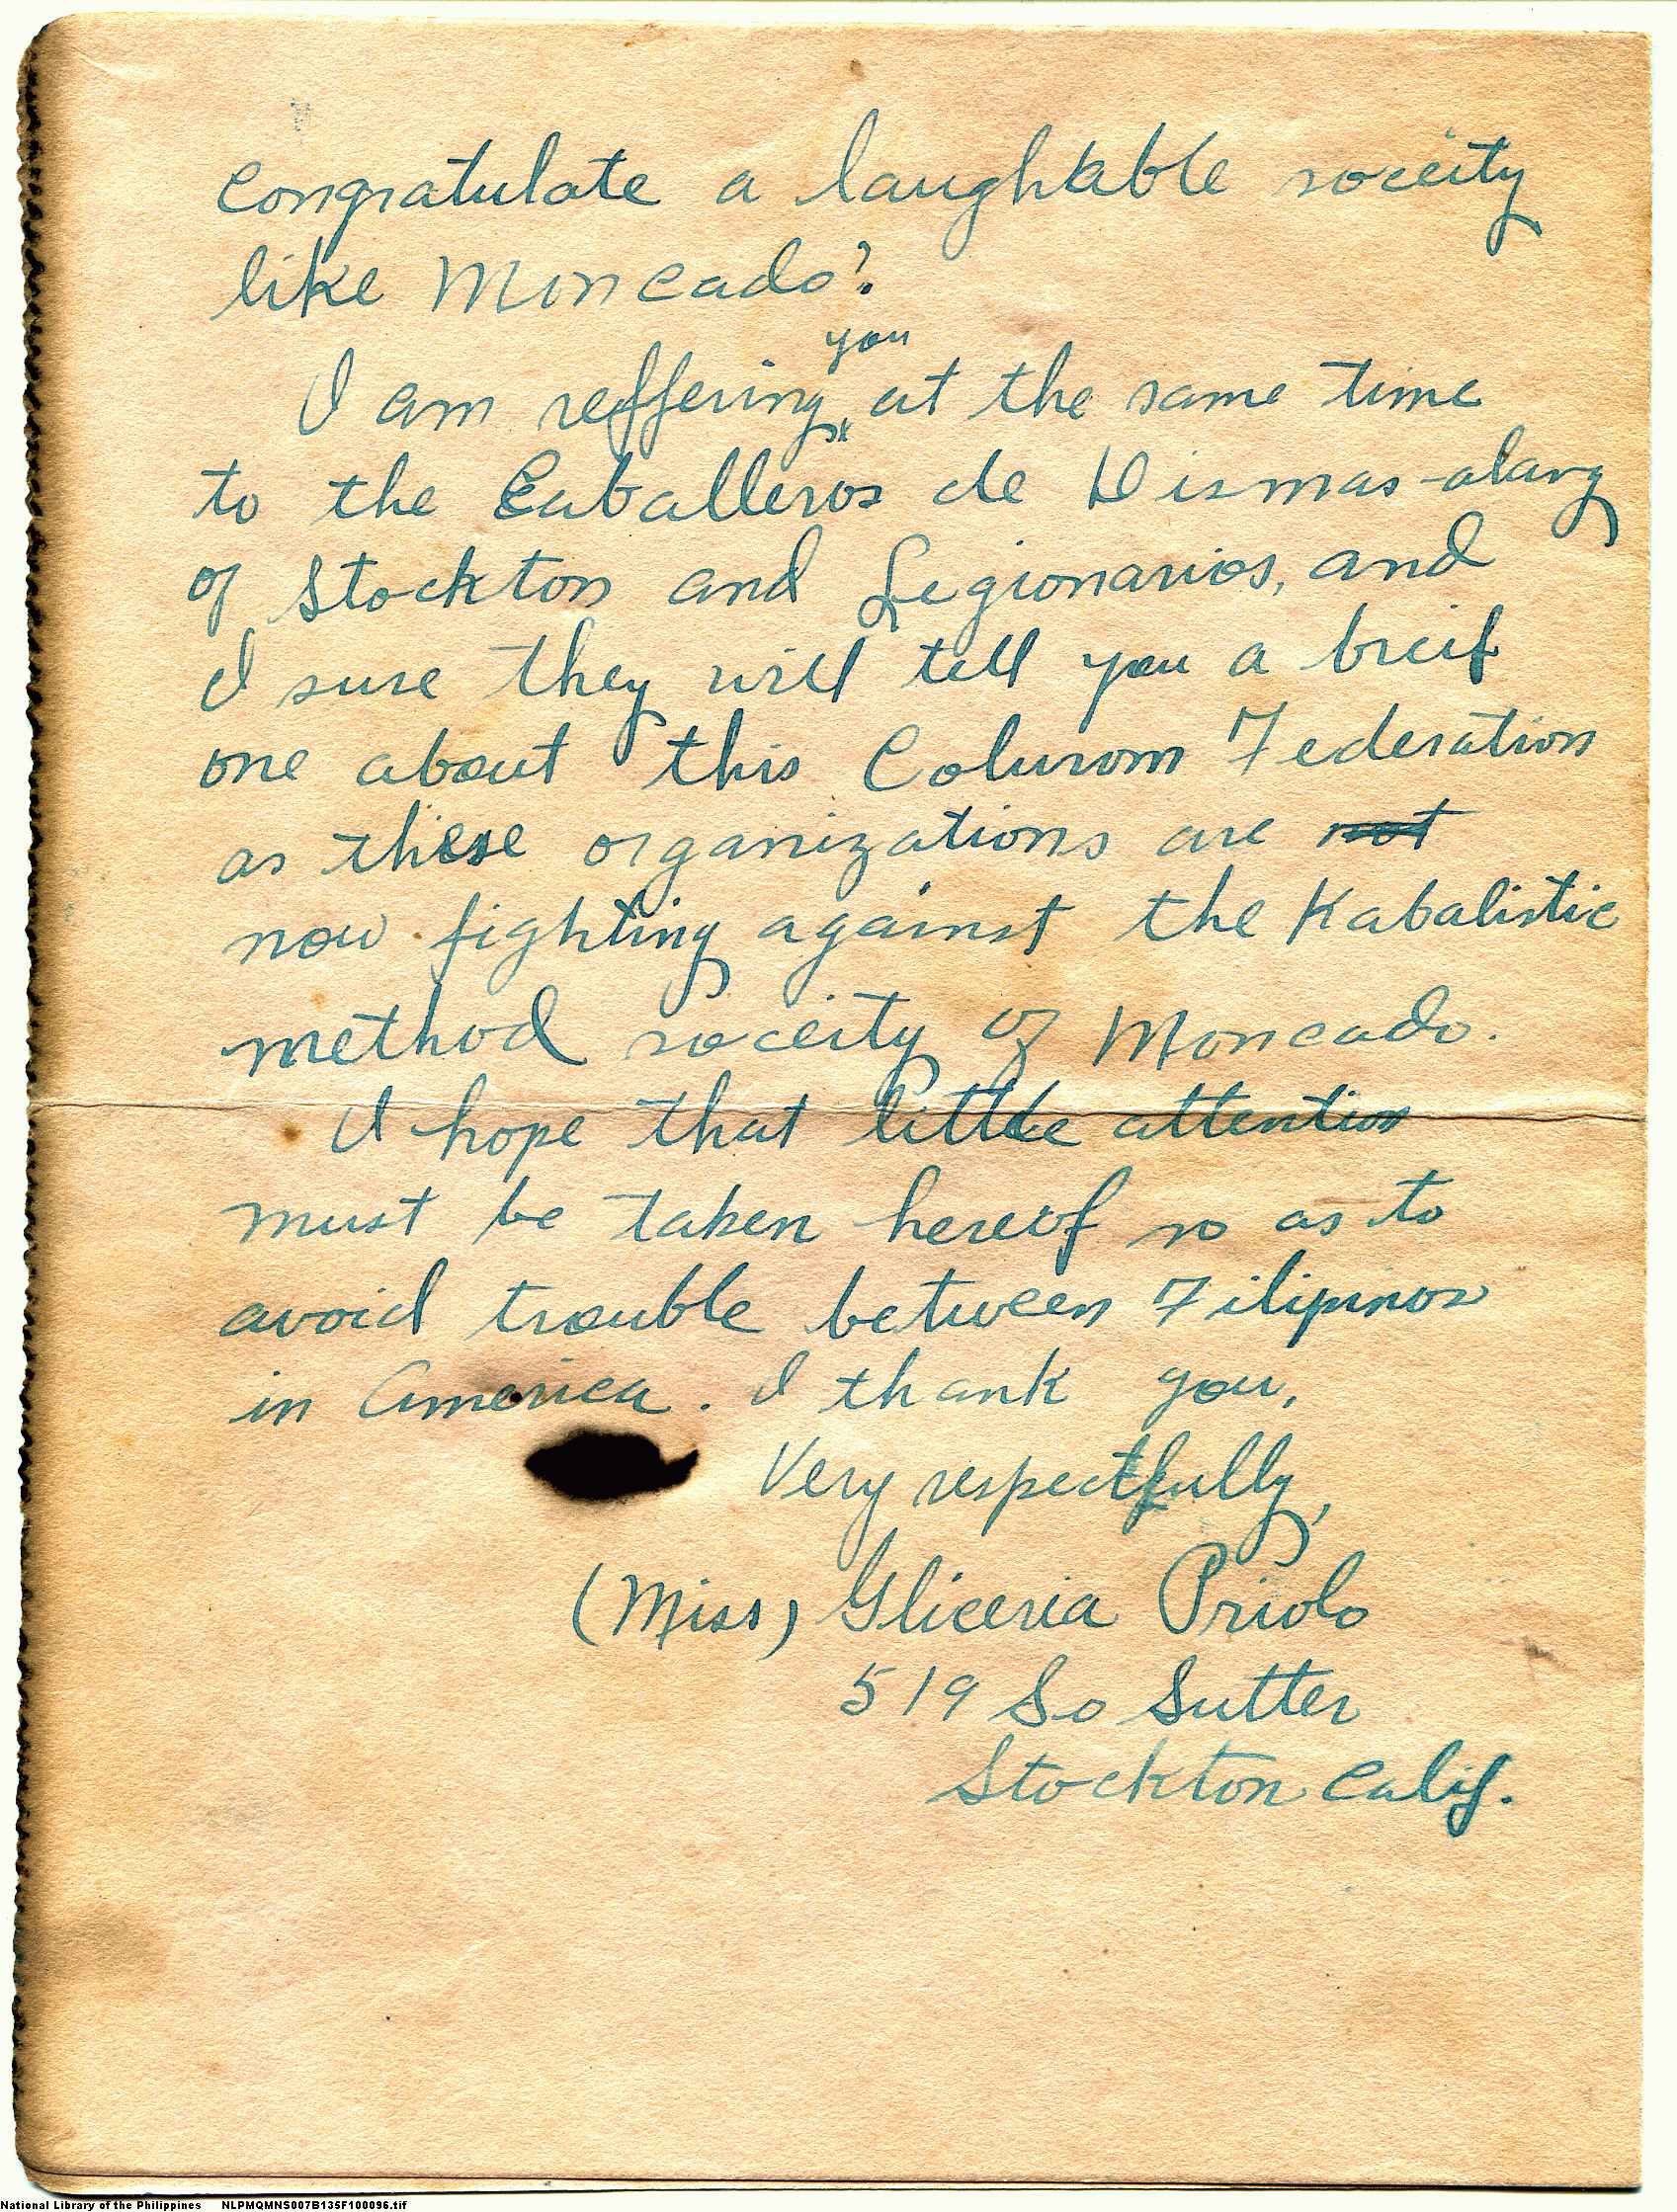 congratulate a laughable soceity
like Moncado?
I am reffering you at the same time
to the Caballeros de Dismas-alang
of Stockton and Legionarios, and
I sure they will tell you a breif
one about this Colurom Federation
as these organizations are not
now fighting against the Kabalistic
method soceity of Moncado.
I hope that little attention
must be taken hereof so as to
avoid trouble between Filipinos
in America. I thank you,
Very respectfully,
(Miss) Gliceria Priolo
519 So Sutter
Stockton Calif.
National Library of the Philippines NLPMQMNS007B135F100096.tif